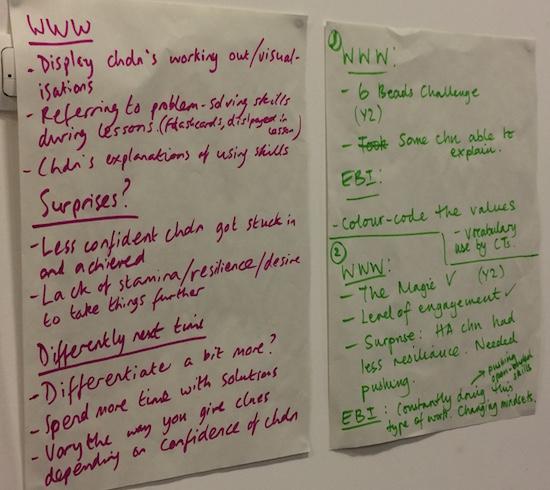 WWW
- Display chdn's working out/visual-
isations
- Referring to problem-solving skills
during lessons. (Flashcards, displayed in
lesson)
- Chdn's explanations of using skills
Surprises?
- Less confident chdn got stuck in
and achieved
- Lack of stamina/resilience/desire
to take things further
Differently next time
- Differentiate a bit more?
- Spend more time with solutions
- Vary the way you give clues
depending on confidence of chdn
1 WWW:
- 6 Beads Challenge
(Y2)
- Took Some chn able to
explain.
EBI:
- Colour-code the values
- Vocabulary
use by CTs.
2
WWW:
- The Magic V (Y2)
- Level of engagement ✓
- Surprise: HA chn had
less resiliance. Needed
pushing.
→ pushing
open-ended
skills
EBI: Constantly doing this
type of work. Changing mindsets.